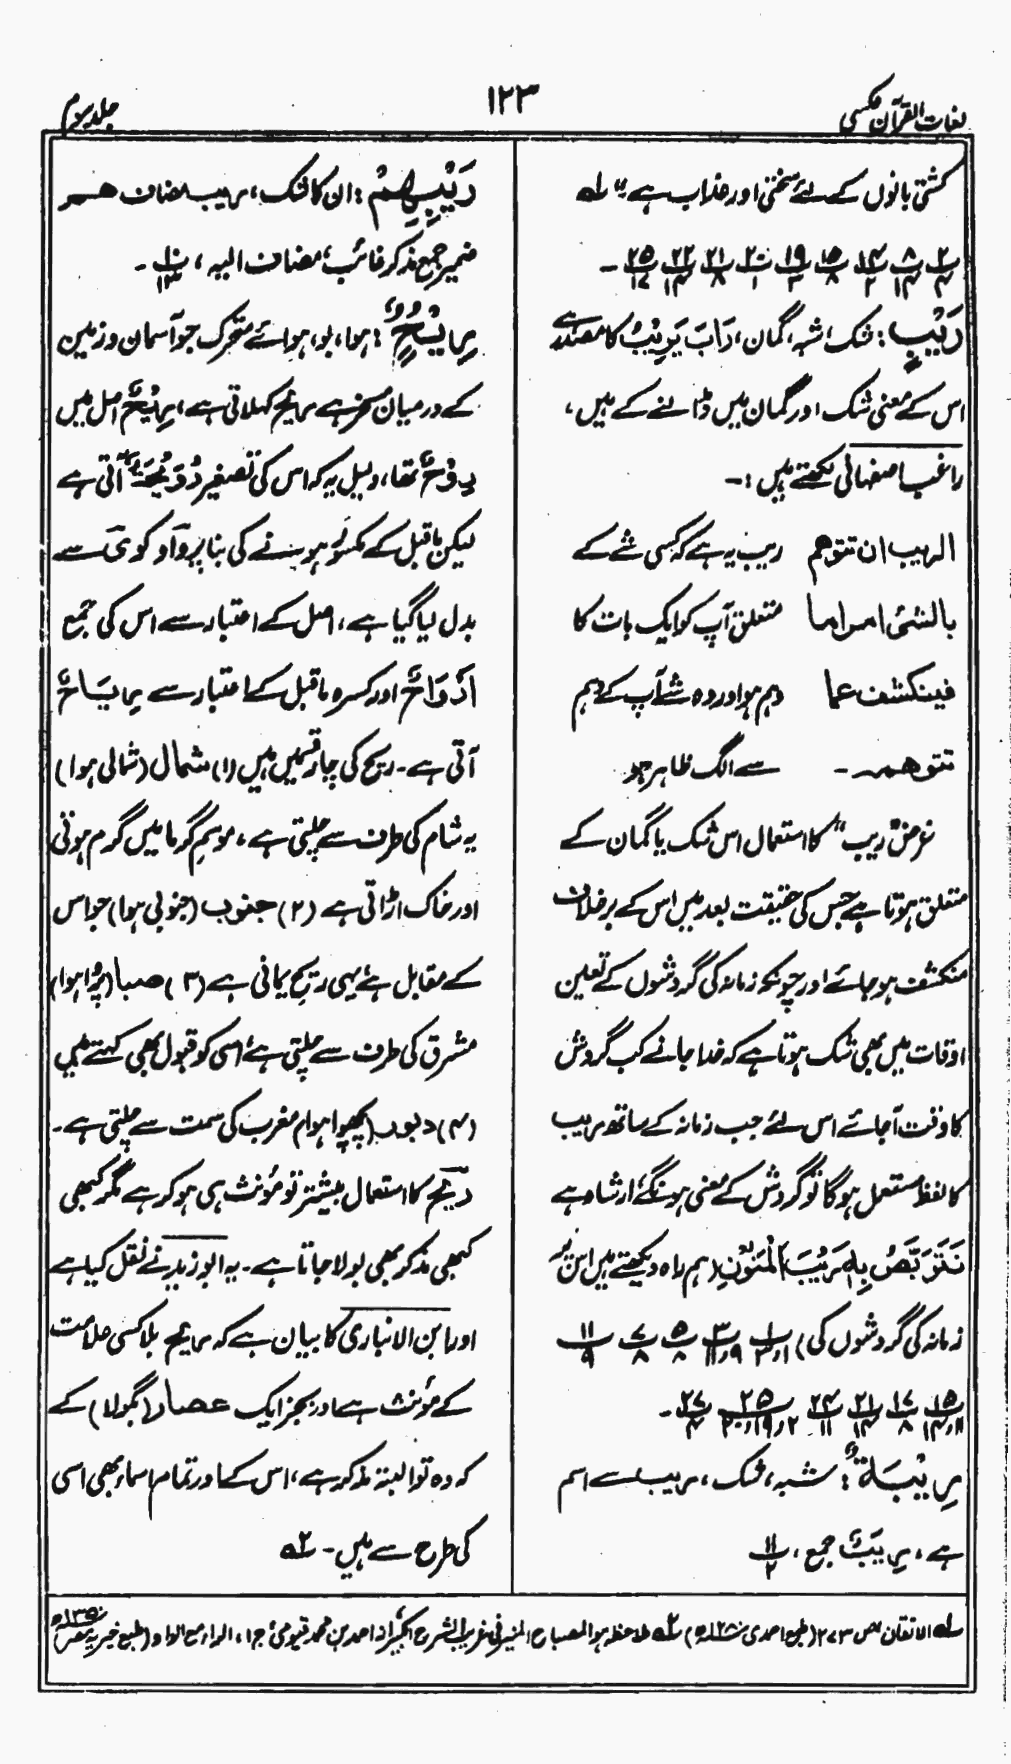 لغات القرآن عکسی
۱۲۳
جلد سوم
کشتی بانوں کے لئے سختی اور عذاب ہے" لہ
رَیْبٍ : شک، شبہ، گمان، رَابَ یَرِیْبُ کا مصدر ہے
اس کے معنی شک اور گمان میں ڈالنے کے ہیں،
راغب اصفہانی لکھتے ہیں :-
الریب ان تتوھم ریب یہ ہے کہ کسی شے کے
بالشئی امرا ما متعلق آپ کو ایک بات کا
فینکشف عما وہم ہو اور وہ شے آپ کے وہم
تتوھمہ - سے الگ ظاہر ہو
غرض "ریب" کا استعمال اس شک یا گمان کے
متعلق ہوتا ہے جس کی حقیقت بعد میں اس کے برخلاف
منکشف ہو جائے اور چونکہ زمانہ کی گردشوں کے تعین
اوقات میں بھی شک ہوتا ہے کہ خدا جانے کب گردش
کا وقت آجائے اس لئے جب زمانہ کے ساتھ ریب
کا لفظ مستعمل ہوگا تو گردش کے معنی ہونگے ارشاد ہے
نَتَرَبَّصُ بِہٖ رَیْبَ الْمَنُوْنِ (ہم راہ دیکھتے ہیں اس پر
زمانہ کی گردشوں کی)
رِیْبَۃٌ : شبہ، شک، ریب سے اسم
ہے، رِیَبٌ جمع، ۱۱/۲
رَیْبِھِمْ : ان کا شک، ریب مضاف ھم
ضمیر جمع مذکر غائب، مضاف الیہ، ۱۰/۱۳ -
رِیْحٌ : ہوا، بو، ہوائے متحرک جو آسمان و زمین
کے درمیان مسخر ہے ریح کہلاتی ہے، رِیْحٌ اصل میں
رِوْحٌ تھا، دلیل یہ کہ اس کی تصغیر رُوَیْحَۃٌ آتی ہے
لیکن ماقبل کے مکسور ہونے کی بنا پر واو کو ی سے
بدل لیا گیا ہے، اصل کے اعتبار سے اس کی جمع
اَرْوَاحٌ اور کسرہ ماقبل کے اعتبار سے رِیَاحٌ
آتی ہے۔ ریح کی چار قسمیں ہیں (۱) شمال (شمالی ہوا)
یہ شام کی طرف سے چلتی ہے، موسمِ گرما میں گرم ہوتی
اور خاک اڑاتی ہے (۲) جنوب (جنوبی ہوا) جو اس
کے مقابل ہے یہی ریحِ یمانی ہے (۳) صبا (پُروا ہوا)
مشرق کی طرف سے چلتی ہے اسی کو قبول بھی کہتے ہیں
(۴) دبور (پچھوا ہوا) مغرب کی سمت سے چلتی ہے۔
ریح کا استعمال بیشتر تو مؤنث ہی ہوکر ہے مگر کبھی
کبھی مذکر بھی بولا جاتا ہے۔ یہ ابوزید نے نقل کیا ہے
اور ابن الانباری کا بیان ہے کہ ریح بلا کسی علامت
کے مؤنث ہے اور بجز ایک عصار (بگولا) کے
کہ وہ تو البتہ مذکر ہے، اس کے اور تمام اسماء بھی اسی
کی طرح سے ہیں۔ ۲ہ
لہ الاتقان ص ۲۷۳ (طبع احمدی) ۲ہ ملاحظہ ہو المصباح المنیر فی غریب الشرح الکبیر از احمد بن محمد فیومی ج۱، الراء مع الواو (طبع خیریہ مصر)